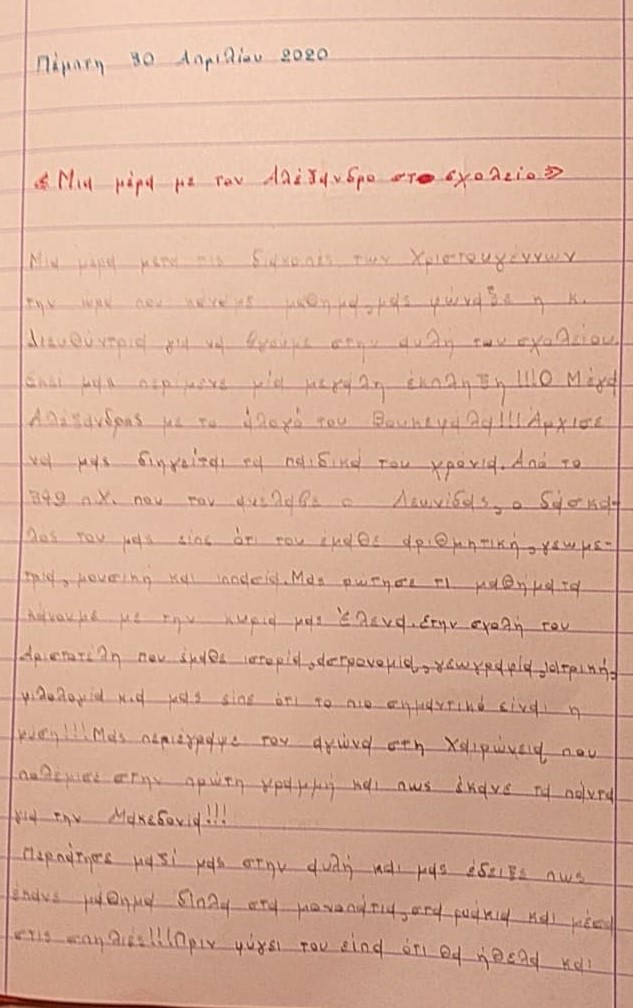 Πέμπτη 30 Απριλίου 2020
«Μια μέρα με τον Αλέξανδρο στο σχολείο»
Μια μέρα μετά τις διακοπές των Χριστουγέννων
την ώρα που κάναμε μάθημα, μας φώναξε η κ.
Διευθύντρια για να βγούμε στην αυλή του σχολείου.
Εκεί μας περίμενε μία μεγάλη έκπληξη!!!Ο Μέγα
Αλέξανδρος με το άλογό του Βουκεφάλα!!!Άρχισε
να μας διηγείται τα παιδικά του χρόνια. Από το
349 π.Χ. που τον ανέλαβε ο Λεωνίδας, ο δάσκα-
λός του μας είπε ότι του έμαθε αριθμητική, γεωμε-
τρία, μουσική και ιππασία. Μας ρώτησε τι μαθήματα
κάνουμε με την κυρία μας Έλενα. Στην σχολή του
Αριστοτέλη που έμαθε ιστορία, αστρονομία, γεωγραφία, ιατρική,
φιλολογία και μας είπε ότι το πιο σημαντικό είναι η
φύση!!!Μας περιέγραψε τον αγώνα στη Χαιρώνεια που
πολέμησε στην πρώτη γραμμή και πως έκανε τα πάντα
για την Μακεδονία!!!
Περπάτησε μαζί μας στην αυλή και μας έδειξε πως
έκανε μάθημα δίπλα στα μονοπάτια, στα ρυάκια και μέσα
στις σπηλιές!!!Πριν φύγει του είπα ότι θα ήθελα και